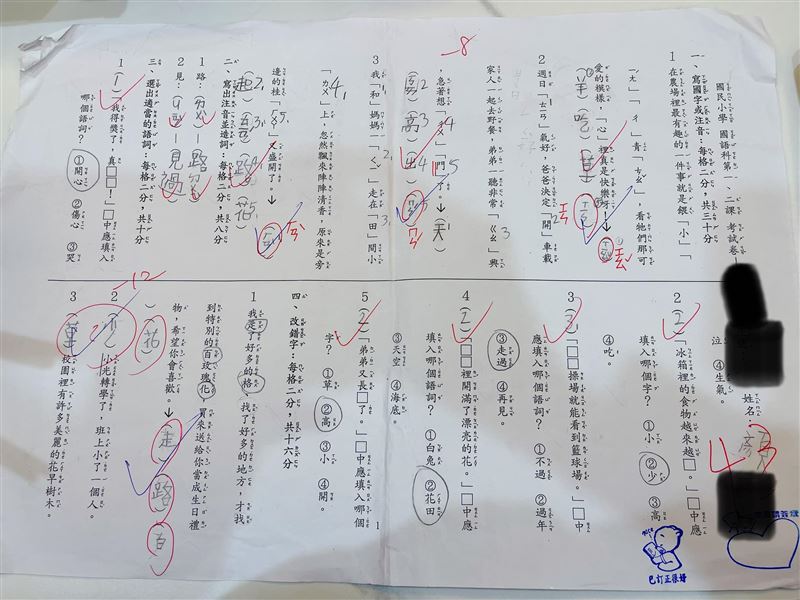 國民小學 國語科第一、二課 考試卷
一、寫國字或注音:每格二分,共三十分
1 在農場裡最有趣的一件事就是餵「小」「
ㄧㄤ」「ㄔ」青「ㄘㄠ」,看牠們那可
愛的模樣,「心」裡真是快樂呀!
2 週日「ㄊㄧㄢ」氣好,爸爸決定「開」車載
家人一起去野餐,弟弟一聽非常「ㄍㄠ」興
,急著想「ㄔㄨ」「門」了。→(天)
3 我「和」媽媽「ㄑㄩ」走在「田」間小
「ㄌㄨ」上,忽然飄來陣陣清香,原來是旁
邊的桂「ㄏㄨㄚ」又盛開了。→
二、寫出注音並造詞:每格二分,共八分
1 路:(ㄌㄨ)-(路
2 見:(ㄐㄧㄢ)-(見過)
三、選出適當的語詞:每格二分,共十分
1 (1)「我得獎了,真□□!」□中應填入
哪個語詞? ①開心 ②傷心 ③哭
泣 ④生氣。
姓名:
43
2 (2)「冰箱裡的食物越來越□。」□中應
填入哪個字? ①小 ②少 ③高
④吃。
3 (3)「□□操場就能看到籃球場。」□中
應填入哪個語詞? ①不過 ②過年
③走過 ④再見。
4 (2)「□□裡開滿了漂亮的花。」□中應
填入哪個語詞? ①白兔 ②花田
③天空 ④海底。
5 (2)「弟弟又長□了。」□中應填入哪個
字? ①草 ②高 ③小 ④開。
四、改錯字:每格二分,共十六分
1 我是了好多的格,找了好多的地方,才找
到特別的百玫瑰化,買來送給你當成生日禮
物,希望你會喜歡。→(走)(路)(白)
(花)
2 小光轉學了,班上小了一個人。
3 校園裡有許多美麗的花早樹木。
-8
-12
已訂正很好
1